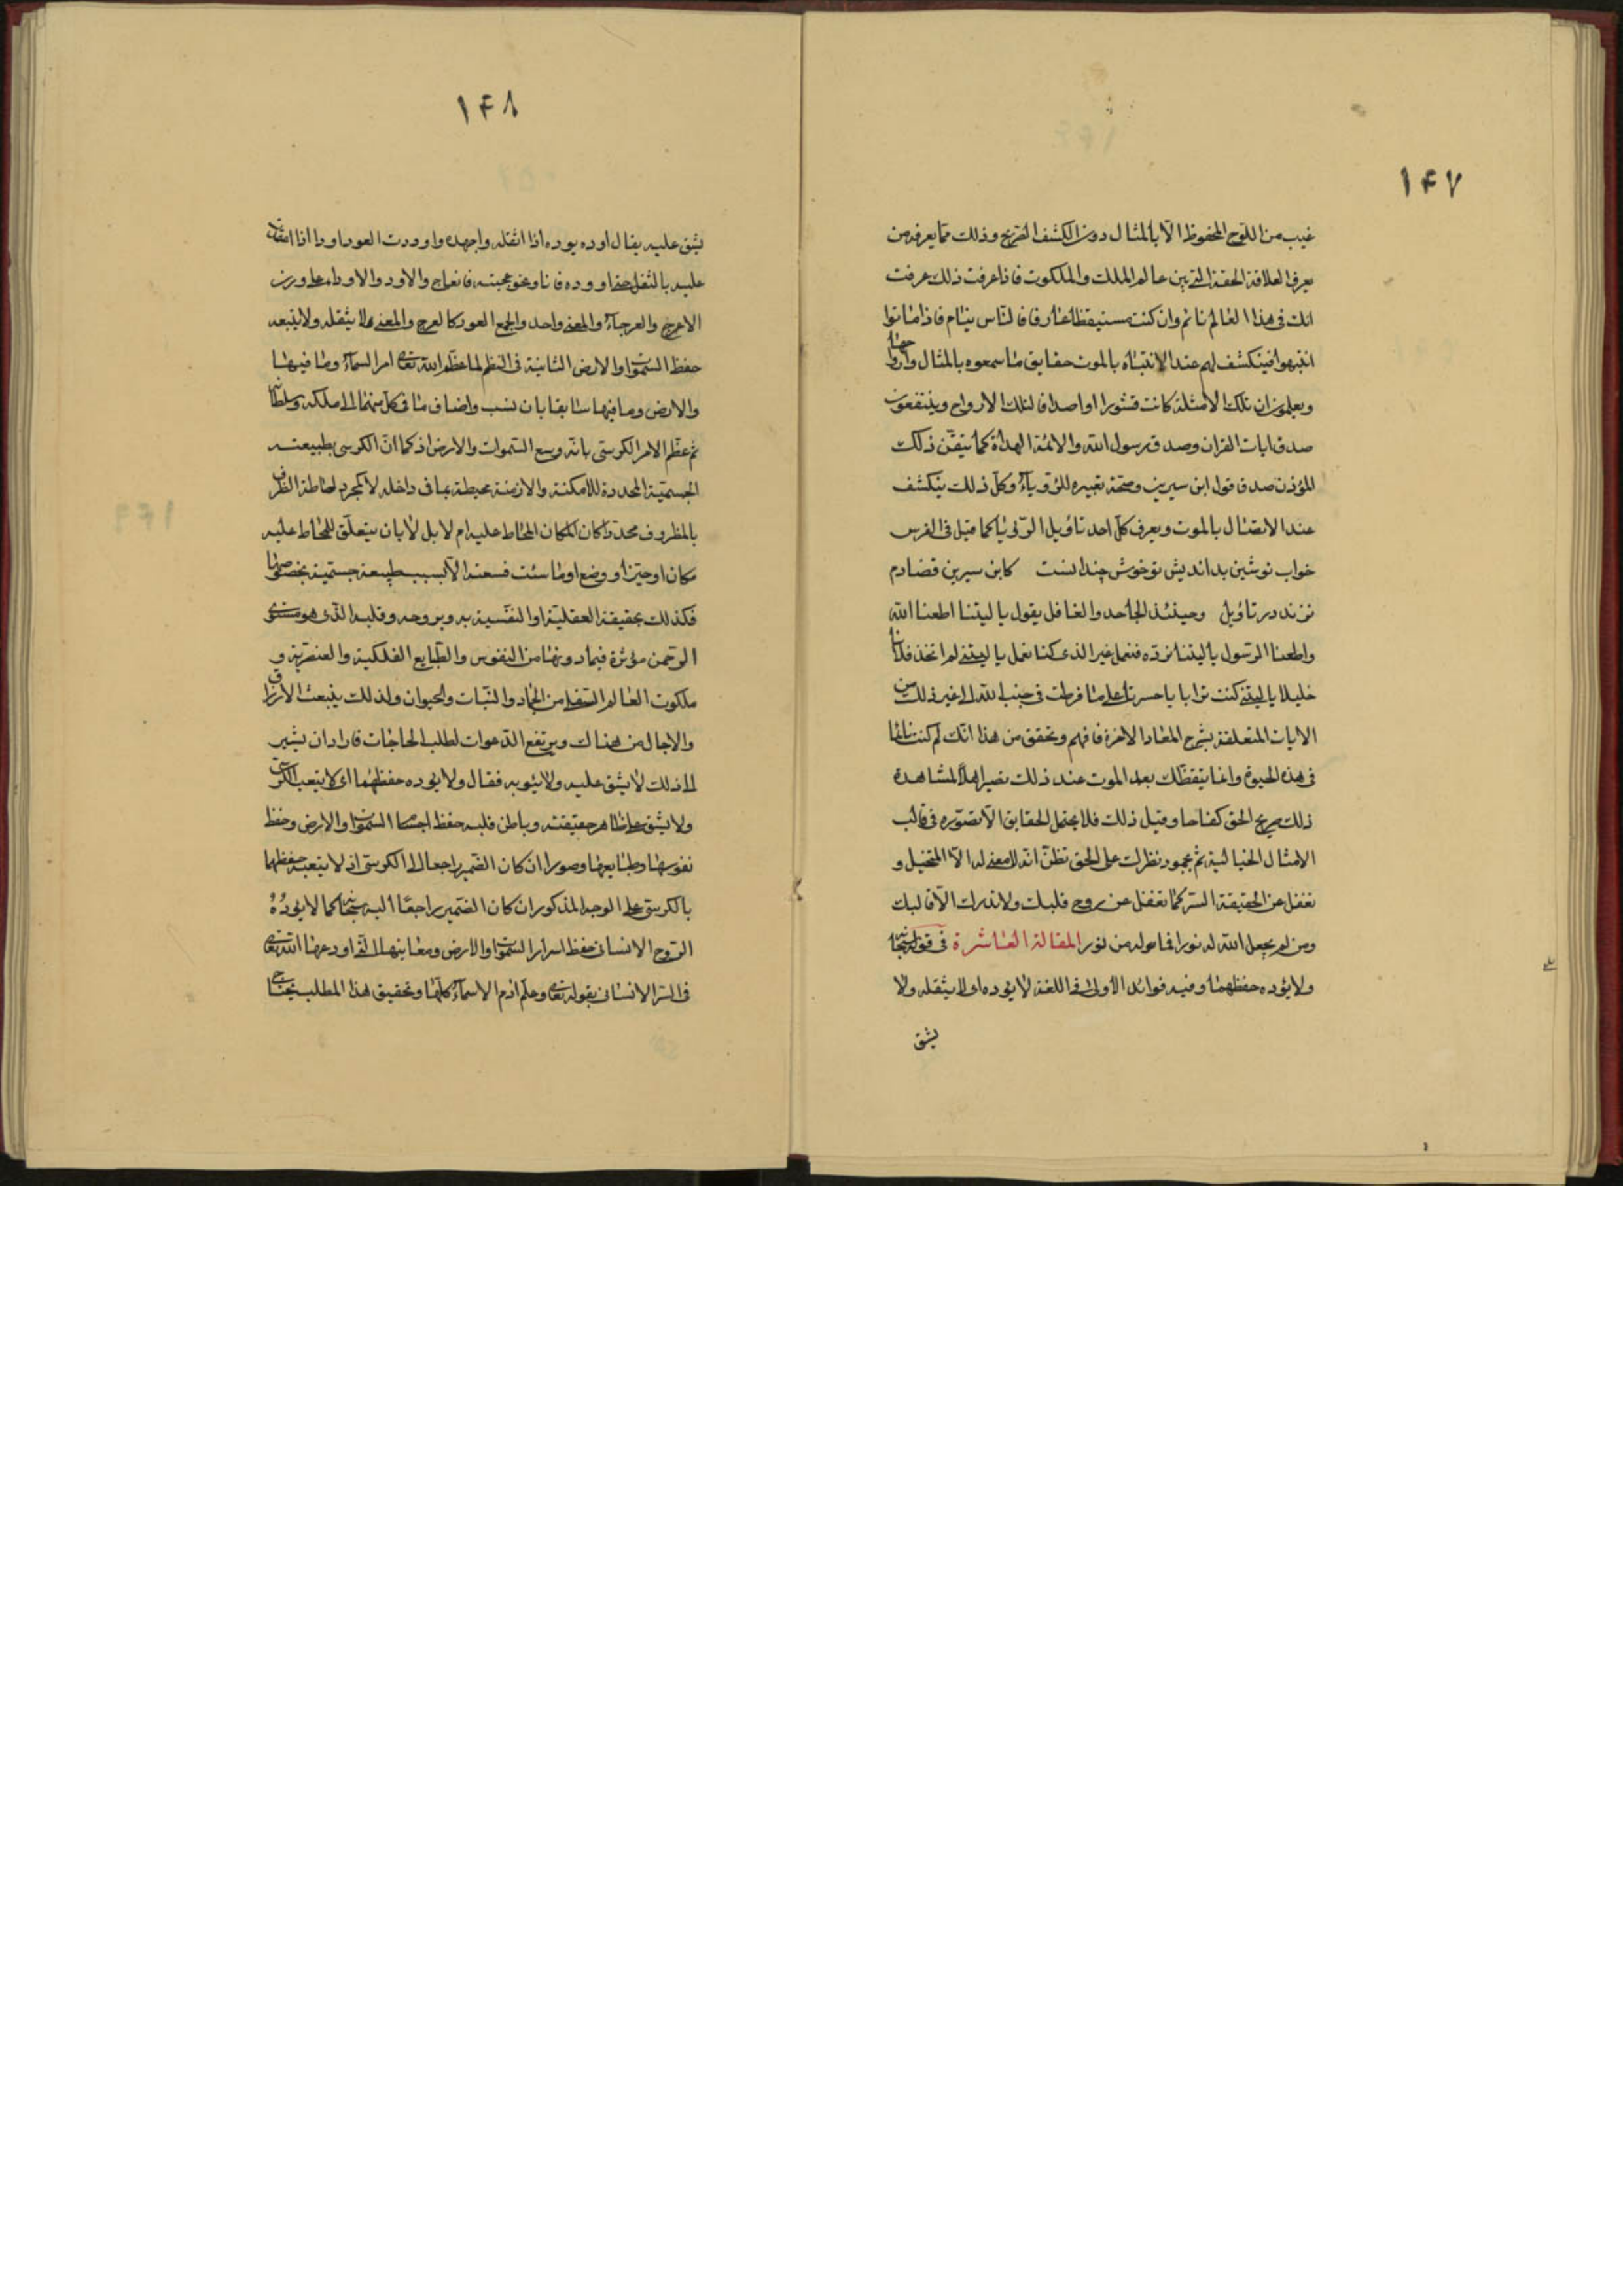 ١۴٧
غيب من اللوح المحفوظ الّا بالمثال دون الكشف الصّريح وذلك ممّا يعرفه من
يعرف العلاقة الحقة التى بين عالم الملك والملكوت فاذا عرفت ذلك عرفت
انك فى هذا العالم نائم وان كنت مستيقظا عارفا فالنّاس نيام فاذا ماتوا
انتبهوا فينكشف لهم عند الانتباه بالموت حقايق ما سمعوه بالمثال وارواحها
ويعلمون ان تلك الامثلة كانت قشورا او اصدافا لتلك الارواح ويتيقنون
صدق ايات القران وصدق رسول الله والائمة الهداة كما تيقّن ذلك
المؤذن صدق قول ابن سيرين وصحّة تعبيره للرّؤياء وكلّ ذلك ينكشف
عند الاتصال بالموت ويعرف كلّ احد تاويل الرّؤيا كما قيل فى الفرس
خواب نوشين بدانديش تو خوش چندانست كابن سيرين قضا دم
نزند در تاويل وحينئذ الجاحد والغافل يقول يا ليتنا اطعنا الله
واطعنا الرّسول يا ليتنا نردّه فنعمل غير الذى كنا نعمل يا ليتنى لم اتخذ فلانا
خليلا يا ليتنى كنت ترابا يا حسرتا على ما فرطت فى جنب الله الى غير ذلك من
الايات المتعلقة بشرح المعاد والاخرة فافهم وتحقق من هذا انّك لم كنت نائما
فى هذه الحيوة وانما يتقظك بعد الموت عند ذلك تصير اهلا لمشاهدة
ذلك صريح الحق كفاحا وقبل ذلك فلا تحتمل الحقايق الّا بصوره فى قالب
الامثال الخيالية ثمّ بجمود نظرك على الحق تظنّ انّه لا معنى له الّا المتخيل و
تغفل عن الحقيقة والسّر كما تغفل عن روح قلبك ولا تدرك الّا قالبك
ومن لم يجعل الله له نورا فما له من نور المقالة العاشرة فى قوله سبحانه
ولا يؤده حفظهما وفيه فوائد الأولى فى اللغة لا يؤده اى لا يثقله ولا
يشق
١۴٨
يشق عليه يقال اوده يوده اذا اثقله واجهده واودت العود اودا اذا اعتمدت
عليه بالثقل حتى اوده فاناد نحو عجبته فانعاج والاود والاوداء على وزن
الاعرج والعرجاء والمعنى واحد والجمع العود كالعرج والمعنى لا يثقله ولا يتبعه
حفظ السّموات والارض الثانية فى النظم لما عظّم الله تعالى امر السماء وما فيها
والارض وما فيها سابقا بان نسب واضاف ما فى كلّ منهما الى ملكه وسلطانه
ثم عظّم الامر الكرسى بانّه وسع السّموات والارض اذ كما انّ الكرسى بطبيعته
الجسميّة المحددة للامكنة والازمنة محيطة بما فى داخله لا كمجرد احاطة الظرف
بالمظروف محدّدا كان المكان المحاط عليه ام لا بل لا بان يتعلّق للمحاط عليه
مكان او حيّز او وضع او ما سئت فسعته الّا بسبب طبيعة جسميّة بخصوصها
فكذلك بحقيقة العقليّة او النفسية به وبروحه وقلبه الذى هو مستوى
الرحمن مؤثرة فيما دونها من النفوس والطّبايع الفلكية والعنصرية و
ملكوت العالم السّفلى من الجماد والنّبات والحيوان ولذلك ينبعث الارزاق
والاجال من هناك ويرتفع الدّعوات لطلب الحاجات فاراد ان يشير
الى ذلك لا يشق عليه ولا يثوبه فقال ولا يوده حفظهما اى لا يتعب الكرسى
ولا يشق على ظاهر حقيقته وباطن قلبه حفظ اجسام السّموات والارض وحفظ
نفوسها وطبايعها وصورا ان كان الضّمير راجعا الى الكرسى اذ لا يتعبه حفظهما
بالكرسى على الوجه المذكور ان كان الضمير راجعا اليه سبحانه كما لا يودُهُ
الرّوح الانسانى حفظ اسرار السّموات والارض ومعانيها التى اودعها الله تعالى
فى السّر الانسانى بقوله تعالى وعلّم ادم الاسماء كلّها وتحقيق هذا المطلب يحتاج